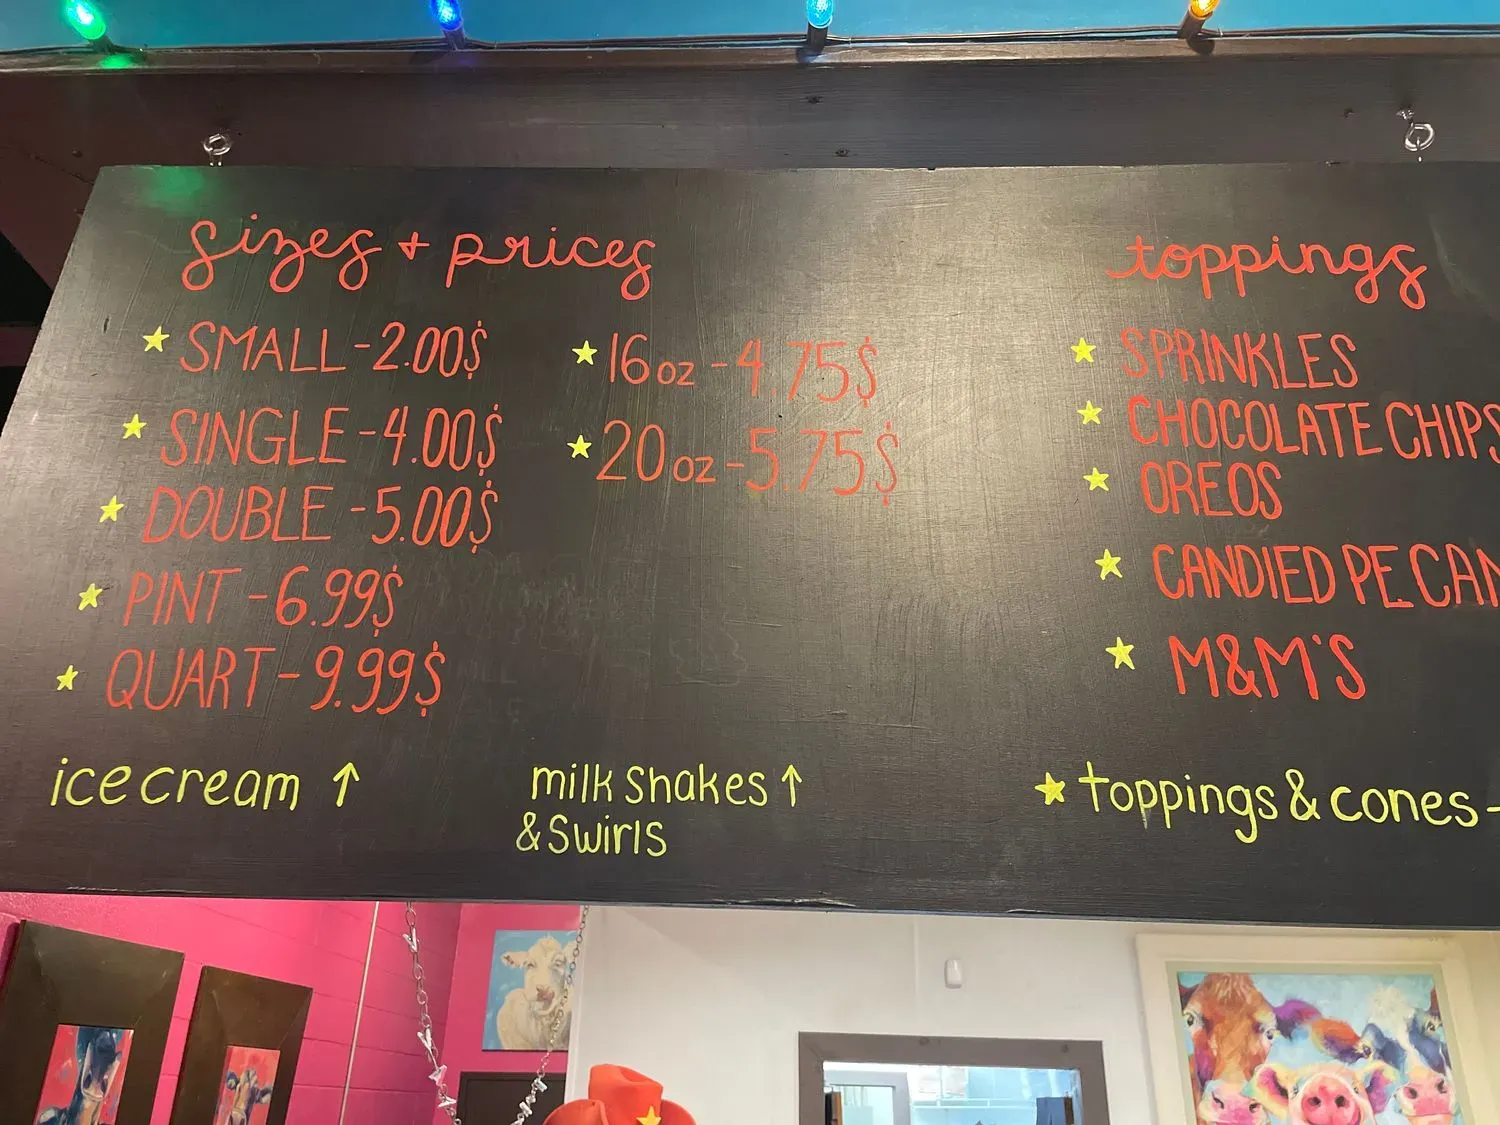 sizes + prices
SMALL - 2.00$
SINGLE - 4.00$
DOUBLE - 5.00$
PINT - 6.99$
QUART - 9.99$
ice cream ↑
16 oz - 4.75$
20 oz - 5.75$
milk shakes ↑
& swirls
toppings
SPRINKLES
CHOCOLATE CHIPS
OREOS
CANDIED PECAN
M&M'S
toppings & cones -